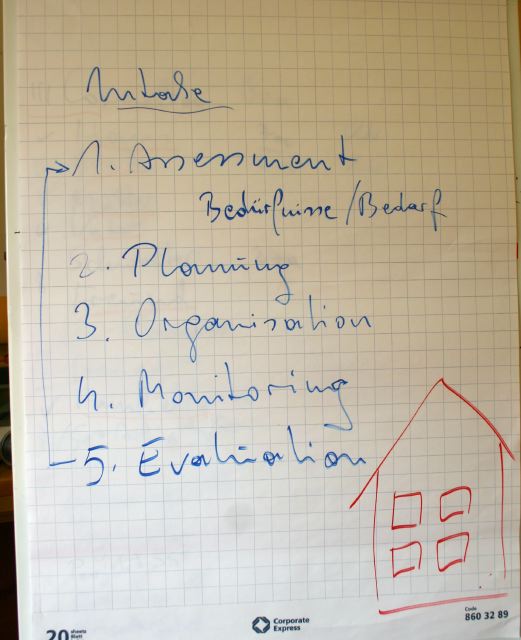 Intake
1. Assessment
Bedürfnisse/Bedarf
2. Planung
3. Organisation
4. Monitoring
5. Evaluation
20 sheets
Blatt
Corporate
Express
Code
860 32 89